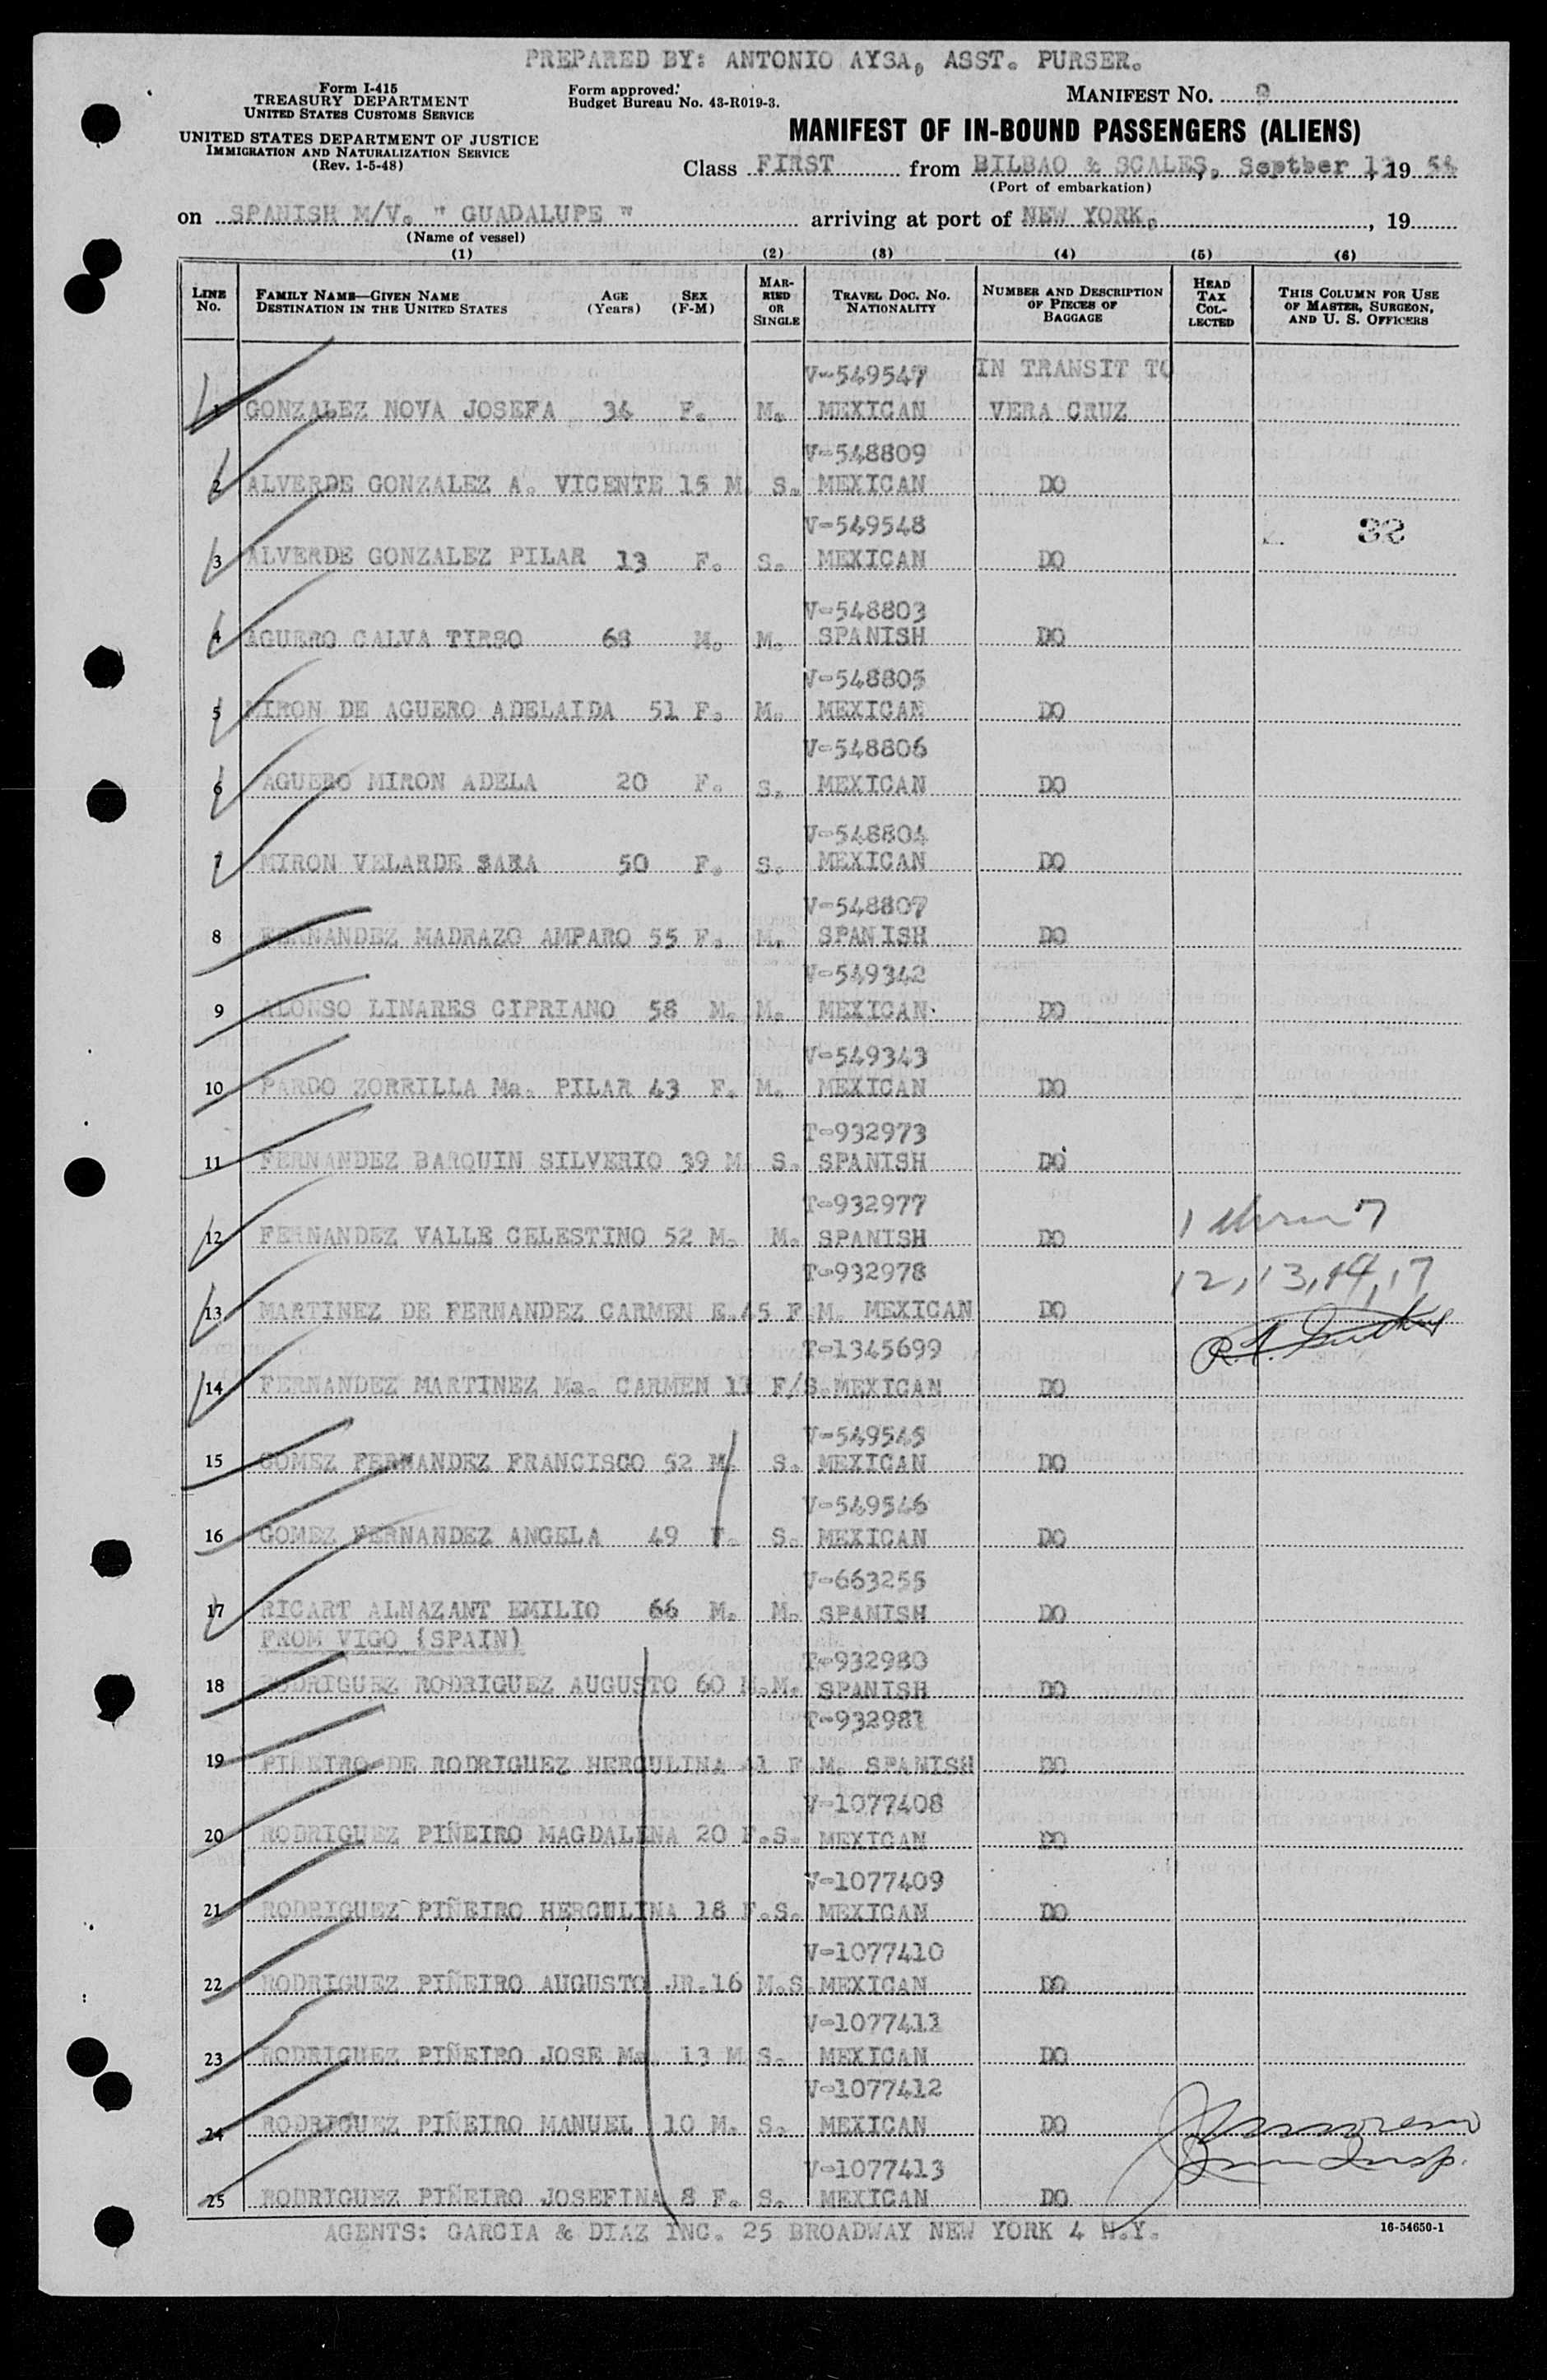 PREPARED BY: ANTONIO AYSA, ASST. PURSER.
Form I-415
TREASURY DEPARTMENT
UNITED STATES CUSTOMS SERVICE
UNITED STATES DEPARTMENT OF JUSTICE
IMMIGRATION AND NATURALIZATION SERVICE
(Rev. 1-5-48)
Form approved.
Budget Bureau No. 43-R019-3.
MANIFEST NO.
MANIFEST OF IN-BOUND PASSENGERS (ALIENS)
Class FIRST from BILBAO & SCALES, Septber 12, 19 54
(Port of embarkation)
on SPANISH M/V. " GUADALUPE " arriving at port of NEW YORK, , 19
(Name of vessel)
(1) (2) (3) (4) (5) (6)
LINE No. FAMILY NAME—GIVEN NAME DESTINATION IN THE UNITED STATES AGE (Years) SEX (F-M) MARRIED OR SINGLE TRAVEL DOC. NO. NATIONALITY NUMBER AND DESCRIPTION OF PIECES OF BAGGAGE HEAD TAX COLLECTED THIS COLUMN FOR USE OF MASTER, SURGEON, AND U. S. OFFICERS
V-549547 IN TRANSIT TO
1 GONZALEZ NOVA JOSEFA 34 F. M. MEXICAN VERA CRUZ
V-548809
2 ALVERDE GONZALEZ A. VICENTE 15 M. S. MEXICAN DO
V-549548 32
3 ALVERDE GONZALEZ PILAR 13 F. S. MEXICAN DO
V-548803
4 AGUERO CALVA TIRSO 68 M. M. SPANISH DO
V-548805
5 MIRON DE AGUERO ADELAIDA 51 F. M. MEXICAN DO
V-548806
6 AGUERO MIRON ADELA 20 F. S. MEXICAN DO
V-548804
7 MIRON VELARDE SARA 50 F. S. MEXICAN DO
V-548807
8 FERNANDEZ MADRAZO AMPARO 55 F. M. SPANISH DO
V-549342
9 ALONSO LINARES CIPRIANO 58 M. M. MEXICAN DO
V-549343
10 PARDO ZORRILLA Ma. PILAR 43 F. M. MEXICAN DO
T-932973
11 FERNANDEZ BARQUIN SILVERIO 39 M. S. SPANISH DO
T-932977
12 FERNANDEZ VALLE CELESTINO 52 M. M. SPANISH DO
T-932978 12, 13, 14, 17
13 MARTINEZ DE FERNANDEZ CARMEN E. 45 F M. MEXICAN DO
T-1345699
14 FERNANDEZ MARTINEZ Ma. CARMEN 11 F/S. MEXICAN DO
V-549545
15 GOMEZ FERNANDEZ FRANCISCO 52 M. S. MEXICAN DO
V-549546
16 GOMEZ FERNANDEZ ANGELA 49 F. S. MEXICAN DO
V-663255
17 RICART ALNAZANT EMILIO 66 M. M. SPANISH DO
FROM VIGO (SPAIN)
T-932980
18 RODRIGUEZ RODRIGUEZ AUGUSTO 60 M.M. SPANISH DO
T-932981
19 PIÑEIRO DE RODRIGUEZ HERCULINA 41 F.M. SPANISH DO
V-1077408
20 RODRIGUEZ PIÑEIRO MAGDALENA 20 F.S. MEXICAN DO
V-1077409
21 RODRIGUEZ PIÑEIRO HERCULINA 18 F.S. MEXICAN DO
V-1077410
22 RODRIGUEZ PIÑEIRO AUGUSTO JR. 16 M.S. MEXICAN DO
V-1077411
23 RODRIGUEZ PIÑEIRO JOSE Ma. 13 M S. MEXICAN DO
V-1077412
24 RODRIGUEZ PIÑEIRO MANUEL 10 M. S. MEXICAN DO
V-1077413
25 RODRIGUEZ PIÑEIRO JOSEFINA 8 F. S. MEXICAN DO
AGENTS: GARCIA & DIAZ INC. 25 BROADWAY NEW YORK 4 N.Y.
16-54650-1